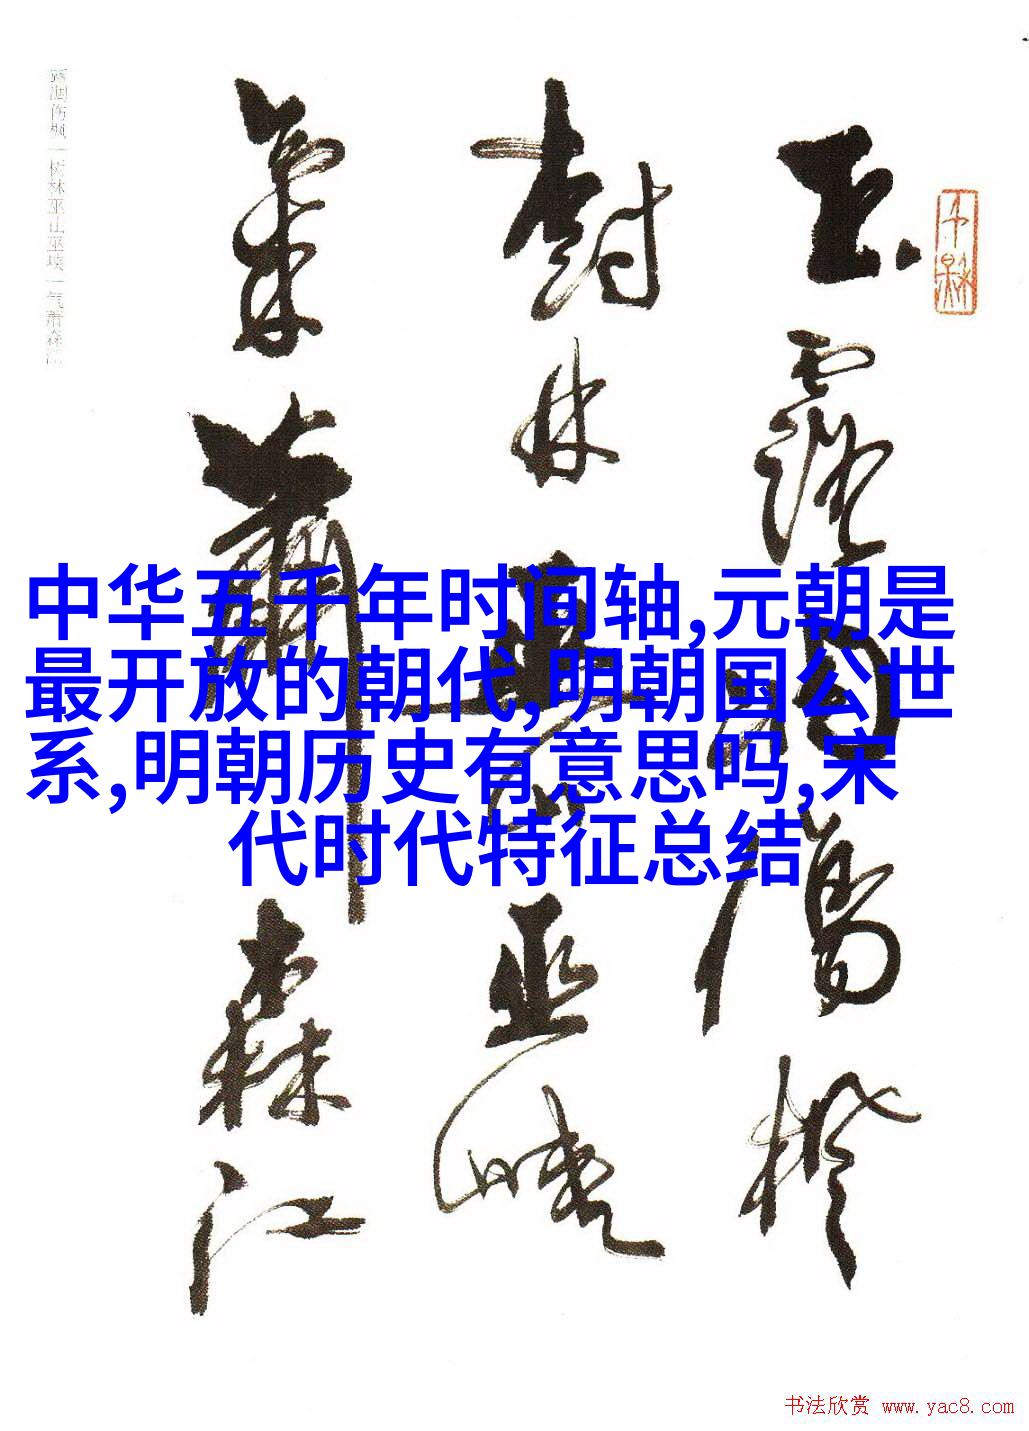 玉露凋傷楓
樹林巫山巫峽
氣蕭森江
中华五千年时间轴,元朝是
最开放的朝代,明朝国公世
系,明朝历史有意思吗,宋
代时代特征总结
书法欣赏 www.yac8.com